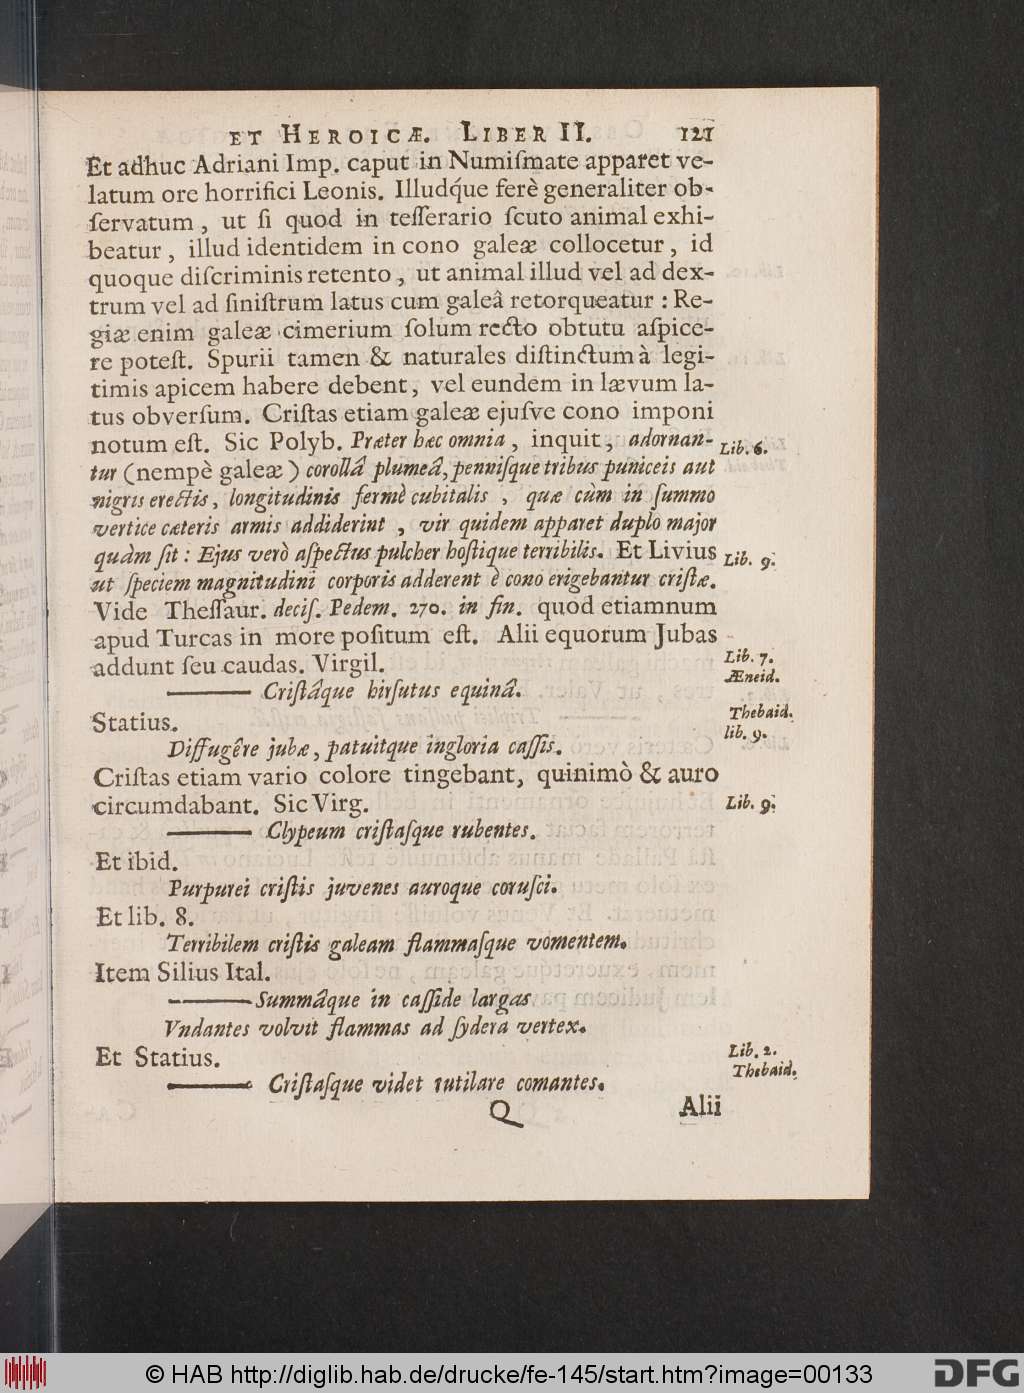 ET HEROICÆ. LIBER II. 121
Et adhuc Adriani Imp. caput in Numiſmate apparet ve-
latum ore horrifici Leonis. Illudq́ue ferè generaliter ob-
ſervatum, ut ſi quod in teſſerario ſcuto animal exhi-
beatur, illud identidem in cono galeæ collocetur, id
quoque diſcriminis retento, ut animal illud vel ad dex-
trum vel ad ſiniſtrum latus cum galeâ retorqueatur: Re-
giæ enim galeæ cimerium ſolum recto obtutu aſpice-
re poteſt. Spurii tamen & naturales diſtinctum à legi-
timis apicem habere debent, vel eundem in lævum la-
tus obverſum. Criſtas etiam galeæ ejuſve cono imponi
notum eſt. Sic Polyb. Præter hæc omnia, inquit, adornan- Lib. 6.
tur (nempè galeæ) corollâ plumeâ, penniſque tribus puniceis aut
nigris erectis, longitudinis fermè cubitalis, quæ cùm in ſummo
vertice cæteris armis addiderint, vir quidem apparet duplo major
quàm ſit: Ejus verò aſpectus pulcher hoſtique terribilis. Et Livius Lib. 9.
ut ſpeciem magnitudini corporis adderent è cono erigebantur criſtæ.
Vide Theſſaur. deciſ. Pedem. 270. in fin. quod etiamnum
apud Turcas in more poſitum eſt. Alii equorum Jubas
addunt ſeu caudas. Virgil. Lib. 7.
Æneid.
——— Criſtâque hirſutus equinâ.
Statius. Thebaid.
lib. 9.
Diffugêre jubæ, patuitque ingloria caſſis.
Criſtas etiam vario colore tingebant, quinimò & auro
circumdabant. Sic Virg. Lib. 9.
——— Clypeum criſtaſque rubentes.
Et ibid.
Purpurei criſtis juvenes auroque coruſci.
Et lib. 8.
Terribilem criſtis galeam flammaſque vomentem.
Item Silius Ital.
——— Summâque in caſſide largas
Vndantes volvit flammas ad ſydera vertex.
Et Statius. Lib. 2.
Thebaid.
——— Criſtaſque videt rutilare comantes.
Q Alii
© HAB http://diglib.hab.de/drucke/fe-145/start.htm?image=00133
DFG